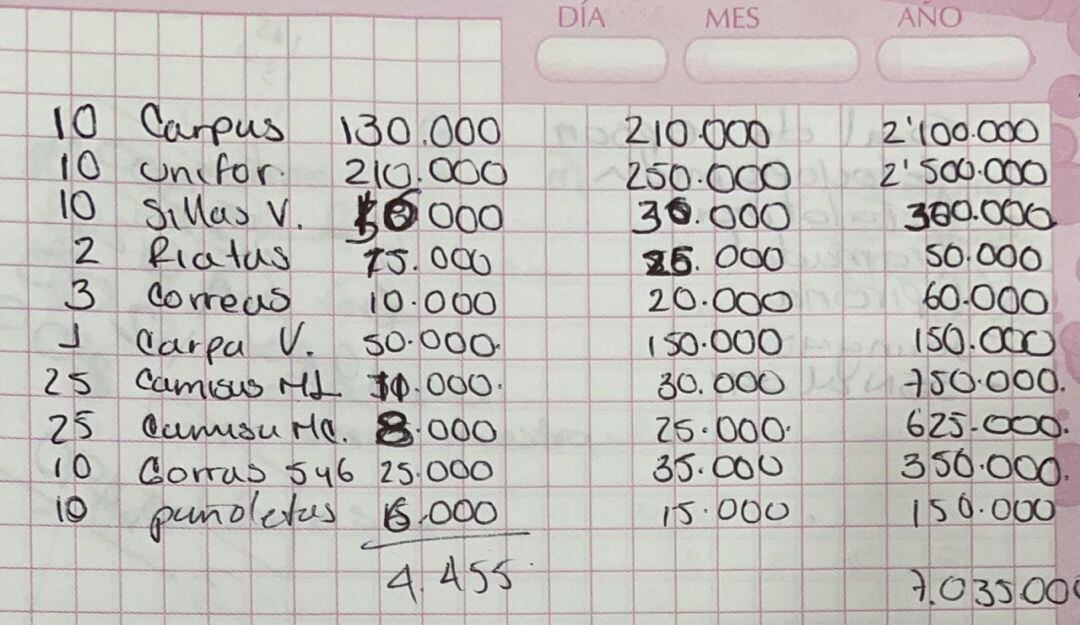 DÍA MES AÑO
10 Carpas 130.000 210.000 2'100.000
10 Unifor. 210.000 250.000 2'500.000
10 Sillas V. 16.000 30.000 300.000
2 Riatas 15.000 25.000 50.000
3 Correas 10.000 20.000 60.000
1 Carpa V. 50.000 150.000 150.000
25 Camisas ML 11.000 30.000 750.000.
25 Camisa MC. 8.000 25.000 625.000.
10 Gorras 5y6 25.000 35.000 350.000.
10 pañoletas 6.000 15.000 150.000
4.455 7.035.000